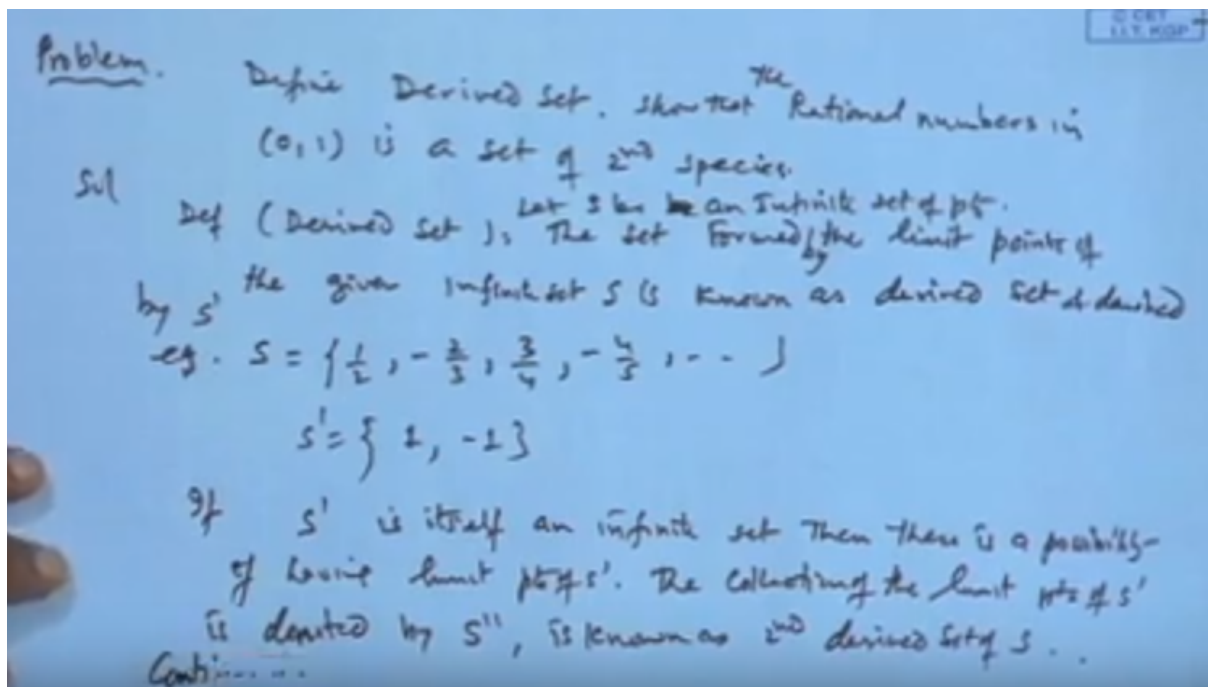 © CET
I.I.T. KGP
Problem. Define Derived Set. Show that the Rational numbers in
(0,1) is a set of 2nd species.
Sol
Let S be an Infinite set of pts.
Def (Derived Set): The set formed by the limit points of
the given infinite set S is known as derived set & denoted
by S'
eg. S = { 1/2, -2/3, 3/4, -4/5, ... }
S' = { 1, -1 }
If S' is itself an infinite set Then there is a possibility
of having limit pts of S'. The collection of the limit pts of S'
is denoted by S'', is known as 2nd derived set of S.
Conti.....